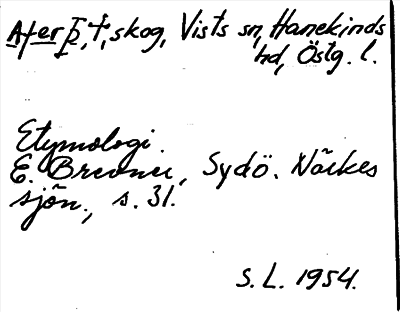 Ater þ, †, skog, Vists sn, Hanekinds
hd, Östg. l.
Etymologi.
E. Brevner, Sydö. Närkes
sjön., s. 31.
S. L. 1954.